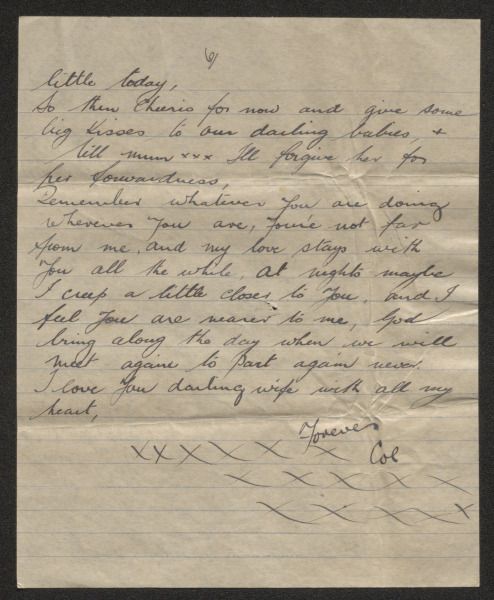 6/
little today,
So then Cheerio for now and give some
big kisses to our darling babies, +
tell mum xxx I'll forgive her for
her forwardness,
Remember whatever You are doing
wherever You are, You're not far
from me, and my love stays with
You all the while, at nights maybe
I creep a little closer to You, and I
feel You are nearer to me, God
bring along the day when we will
meet again to part again never.
I love You darling wife with all my
heart,
Forever
Col
x x x x x x x
x x x x x x
x x x x x